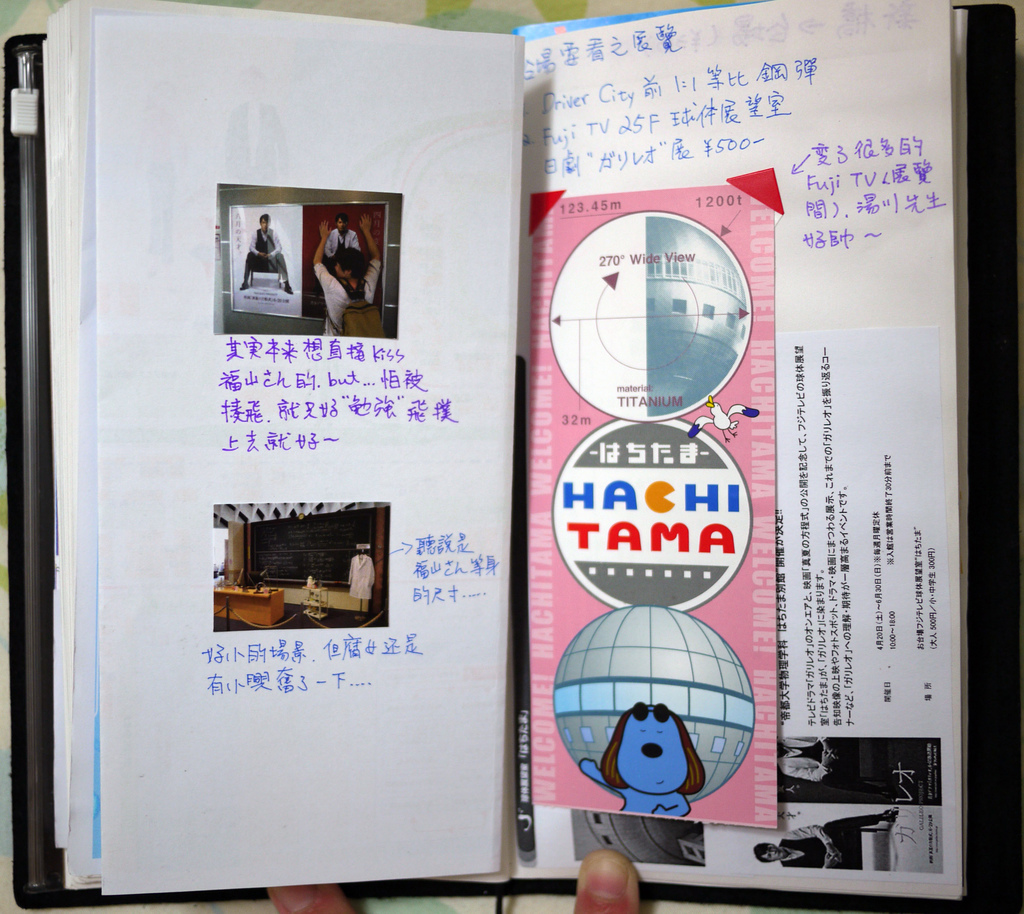 其実本来想直播kiss
福山さん的, but... 怕被
揍飛, 就只好"勉強"飛撲
上去就好~
聽說是
福山さん等身
的尺寸.....
好小的場景, 但腐女还是
有小興奮了一下....
場要看之展覽
Driver City 前 1:1 等比 鋼彈
Fuji TV 25F 球体展望室
日劇"ガリレオ"展 ¥500-
変了很多的
Fuji TV (展覽
間), 湯川先生
好帥~
123.45m
1200t
270° Wide View
material:
TITANIUM
32m
-はちたま-
HACHI
TAMA
WELCOME! HACHITAMA WELCOME! HACHITAMA
WELCOME! HACHITAMA WELCOME! HACHITAMA
"帝都大学物理学科 はちたま別館"開催が決定!!
テレビドラマ「ガリレオ」のオンエアと、映画「真夏の方程式」の公開を記念して、フジテレビの球体展望
室「はちたま」が、「ガリレオ」に染まります。
告知映像の上映やフォトスポット、ドラマ・映画にまつわる展示、これまでの「ガリレオ」を振り返るコー
ナーなど、「ガリレオ」への理解・期待が一層高まるイベントです。
開催日 4月20日(土)~6月30日(日)※毎週月曜定休
10:00~18:00 ※入館は営業時間終了30分前まで
場所 お台場フジテレビ球体展望室"はちたま"
(大人 500円/小・中学生 300円)
球体展望室「はちたま」
ガリレオ